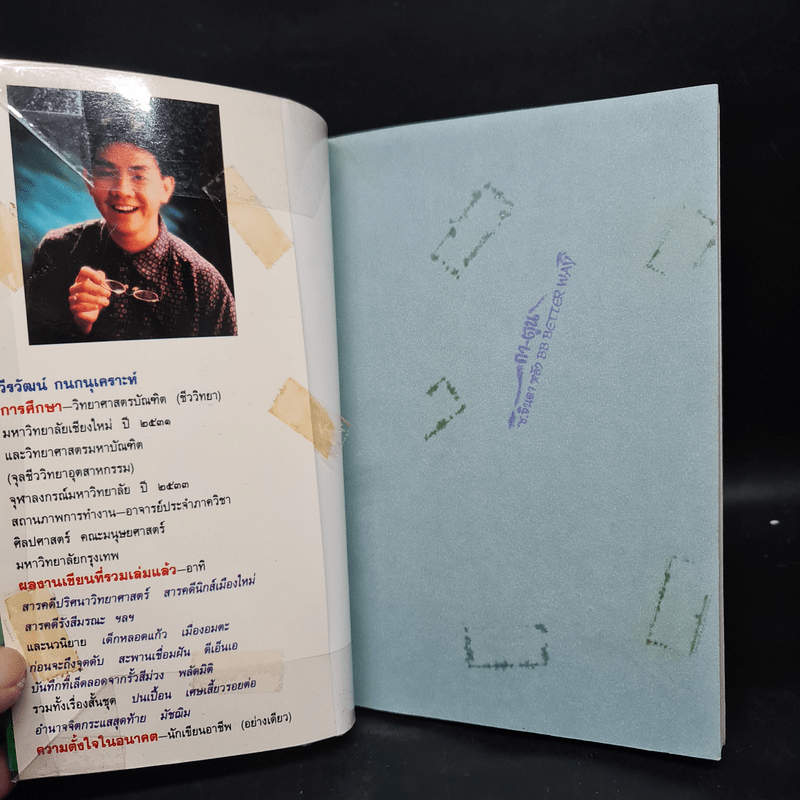 วีรวัฒน์ กนกนุเคราะห์
การศึกษา—วิทยาศาสตรบัณฑิต (ชีววิทยา)
มหาวิทยาลัยเชียงใหม่ ปี ๒๕๓๑
และวิทยาศาสตรมหาบัณฑิต
(จุลชีววิทยาอุตสาหกรรม)
จุฬาลงกรณ์มหาวิทยาลัย ปี ๒๕๓๓
สถานภาพการทำงาน—อาจารย์ประจำภาควิชา
ศิลปศาสตร์ คณะมนุษยศาสตร์
มหาวิทยาลัยกรุงเทพ
ผลงานเขียนที่รวมเล่มแล้ว—อาทิ
สารคดีปริศนาวิทยาศาสตร์ สารคดีนิกส์เมืองใหม่
สารคดีรังสีมรณะ ฯลฯ
และนวนิยาย เด็กหลอดแก้ว เมืองอมตะ
ก่อนจะถึงจุดดับ สะพานเชื่อมฝัน ดีเอ็นเอ
บันทึกที่เล็ดลอดจากรั้วสีม่วง พลัดมิติ
รวมทั้งเรื่องสั้นชุด ปนเปื้อน เศษเสี้ยวรอยต่อ
อำนาจจิตกระแสสุดท้าย มัชฌิม
ความตั้งใจในอนาคต—นักเขียนอาชีพ (อย่างเดียว)
กา-ตูน
ซ.จินดา หลัง BB BETTER WAY